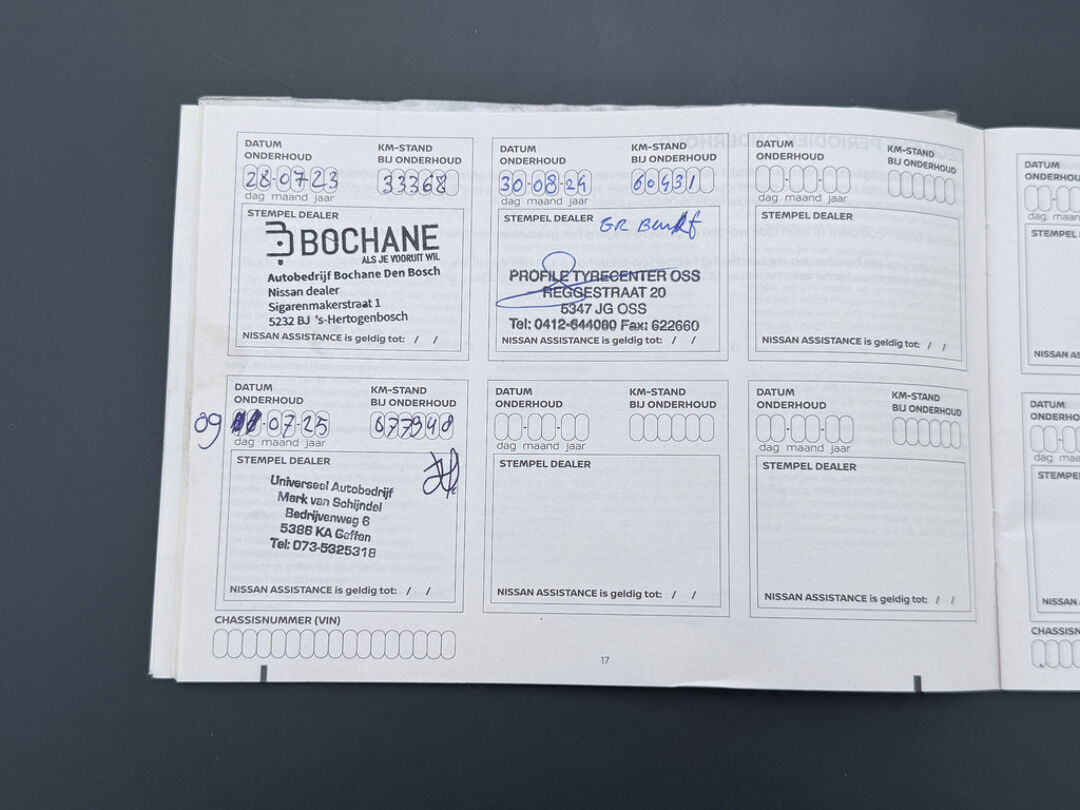 DATUM ONDERHOUD
KM-STAND BIJ ONDERHOUD
28-07-23
33368
dag maand jaar
STEMPEL DEALER
BOCHANE
ALS JE VOORUIT WIL
Autobedrijf Bochane Den Bosch
Nissan dealer
Sigarenmakerstraat 1
5232 BJ 's-Hertogenbosch
NISSAN ASSISTANCE is geldig tot: / /
DATUM ONDERHOUD
KM-STAND BIJ ONDERHOUD
30-08-24
60431
dag maand jaar
STEMPEL DEALER
GR Beurt
PROFILE TYRECENTER OSS
REGGESTRAAT 20
5347 JG OSS
Tel: 0412-644080 Fax: 622660
NISSAN ASSISTANCE is geldig tot: / /
DATUM ONDERHOUD
KM-STAND BIJ ONDERHOUD
dag maand jaar
STEMPEL DEALER
NISSAN ASSISTANCE is geldig tot: / /
DATUM
ONDERHO
dag maa
STEMPEL
NISSAN AS
DATUM ONDERHOUD
KM-STAND BIJ ONDERHOUD
09
-07-25
dag maand jaar
STEMPEL DEALER
Universeel Autobedrijf
Mark van Schijndel
Bedrijvenweg 6
5386 KA Geffen
Tel: 073-5325318
NISSAN ASSISTANCE is geldig tot: / /
DATUM ONDERHOUD
KM-STAND BIJ ONDERHOUD
dag maand jaar
STEMPEL DEALER
NISSAN ASSISTANCE is geldig tot: / /
DATUM ONDERHOUD
KM-STAND BIJ ONDERHOUD
dag maand jaar
STEMPEL DEALER
NISSAN ASSISTANCE is geldig tot: / /
DATUM
ONDERHO
dag maa
STEMPE
NISSAN
CHASSISNUMMER (VIN)
17
CHASSISN